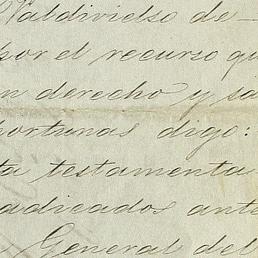 Valdivielso de
por el recurso qu
n derecho y sa
portunas digo:
ta testamenta
adicados ante
General del